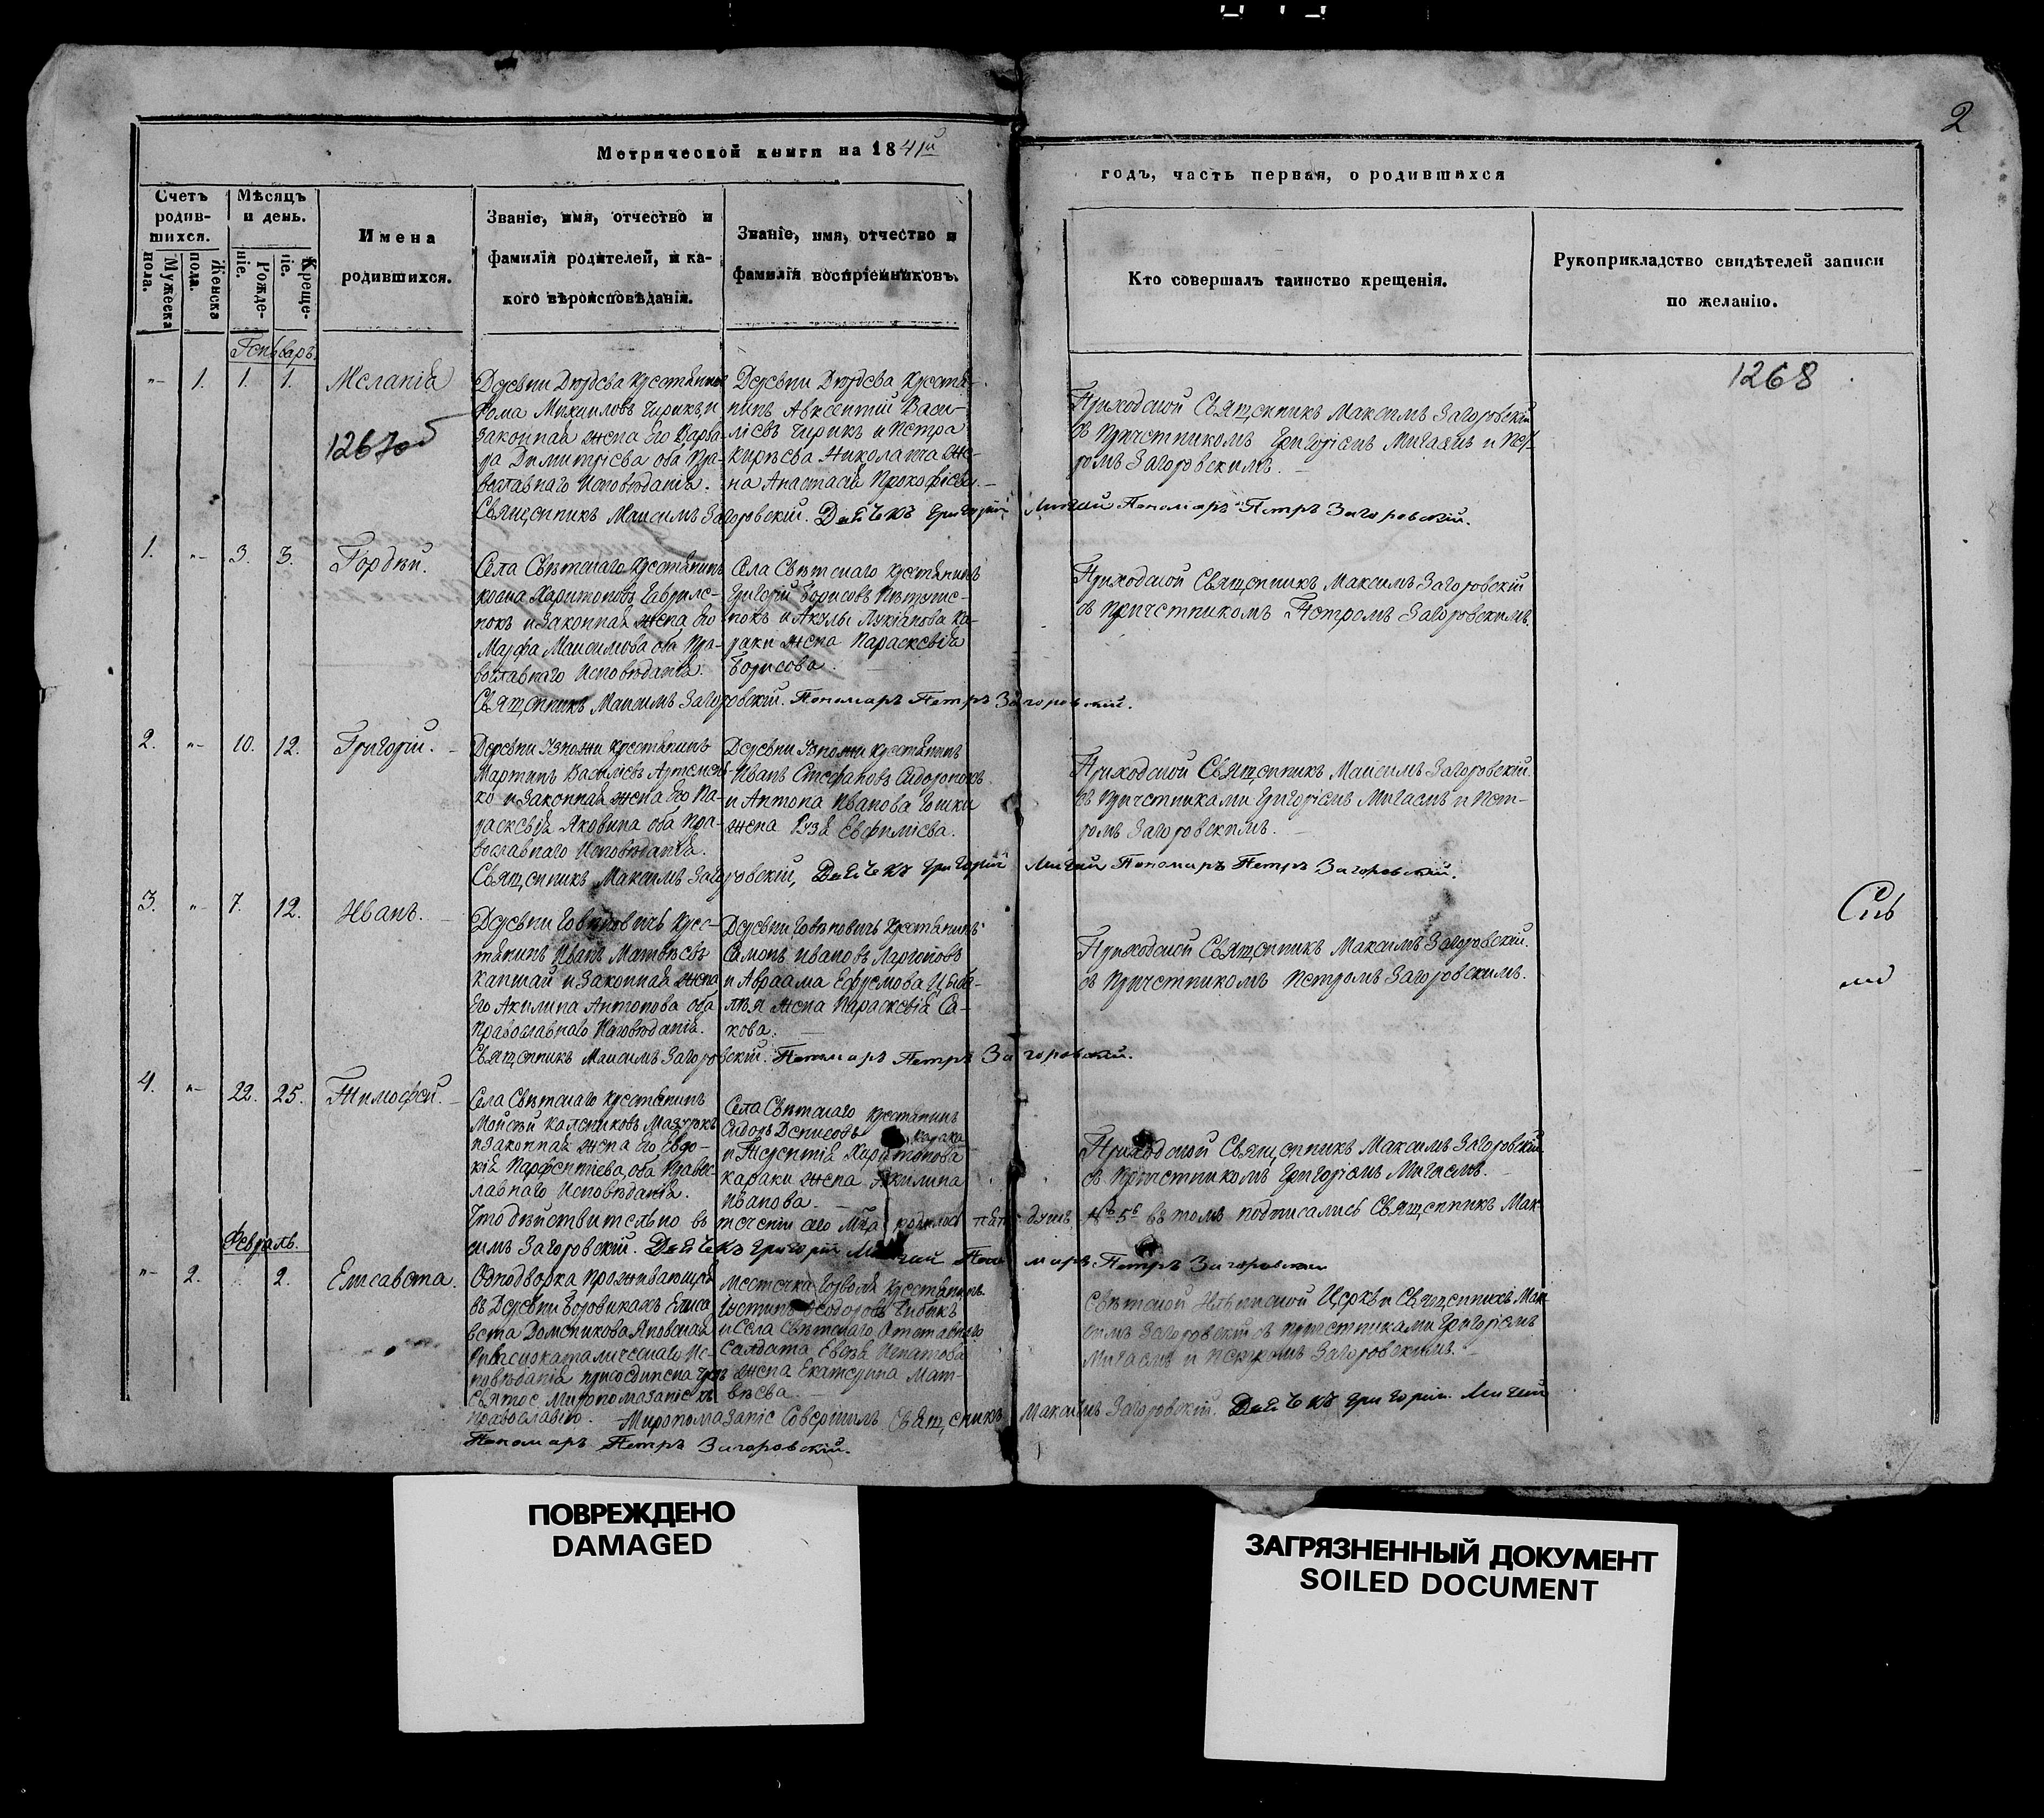 2
Метрической книги на 1841й
годъ, часть первая, о родившихся
Счетъ родив-шихся.
Мѣсяцъ и день.
Имена родившихся.
Званіе, имя, отчество и фамилія родителей, и ка-кого вѣроисповѣданія.
Званіе, имя, отчество и фамилія воспріемниковъ.
Кто совершалъ таинство крещенія.
Рукоприкладство свидѣтелей записи по желанію.
Мужеска пола.
Женска пола.
Рожде-ніе.
Креще-ніе.
Генварь.
"- 1. 1. 1. Меланія
1267об
1268
Деревни Дюрдева Крестьянинъ
Фома Михаиловъ Чирикъ, и
законная жена Его Варва-
ра Димитріева оба Пра-
вославнаго Исповѣданія.
Деревни Дюрдева Крестья-
нинъ Авксентій Васи-
ліевъ Чирикъ и Петра
Кирѣева Николатча Же-
на Анастасія Прокофіева.
Приходской Священникъ Максимъ Загоровскій
съ Причетникомъ Григоріемъ Мигаемъ и Пет-
ромъ Загоровскимъ.
Священникъ Максимъ Загоровскій. Дьячекъ Григорій Мигай Пономарь Петръ Загоровскій.
1. "- 3. 3. Гордѣй.
Села Свѣтскаго Крестьянинъ
Харитоновъ Гаврилє-
нокъ и Законная жена Его
Марфа Максимова оба Пра-
вославнаго Исповѣданія.
Села Свѣтскаго Крестьянинъ
Григорій Борисовъ
и Лукіянова Ка-
раки жена Параскевія
Борисова.
Приходской Священникъ Максимъ Загоровскій
съ Причетникомъ Петромъ Загоровскимъ.
Священникъ Максимъ Загоровскій. Пономарь Петръ Загоровскій.
2. "- 10. 12. Григорій.
Деревни крестьянинъ
Мартинъ Василіевъ Артемен-
ко и Законная жена Его Па-
раскевія Яковина оба Пра-
вославнаго Исповѣданія.
Деревни крестьянинъ
Иванъ Стефановъ Сидоронокъ
и Антона Иванова Гошки
жена Евфиміева.
Приходской Священникъ Максимъ Загоровскій
съ Причетниками Григоріемъ Мигаемъ и Пет-
ромъ Загоровскимъ.
Священникъ Максимъ Загоровскій, Дьячекъ Григорій Мигай Пономарь Петръ Загоровскій.
3. "- 7. 12. Иванъ.
Деревни Говѣновичъ Крес-
тьянинъ Иванъ Матвѣевъ
Капшай и Законная жена
Его Акилина Антонова оба
Православнаго Исповѣданія.
Деревни Говѣновичъ Крестьянинъ
Самонъ Ивановъ
и Авраама Ефремова Цыба-
жена Параскевія Са-
кова.
Приходской Священникъ Максимъ Загоровскій.
съ Причетникомъ Петромъ Загоровскимъ.
Священникъ Максимъ Загоровскій. Пономарь Петръ Загоровскій.
4. "- 22. 25. Тимофей.
Села Свѣтскаго Крестьянинъ
Мойсѣй Мазурокъ
и законная жена его Евдо-
кія Парфентіева, оба Правос-
лавнаго Исповѣданія.
Села Свѣтскаго Крестьянинъ
Сидоръ Денисовъ Карака
и Терентія Харитонова
Караки жена Акилина
Иванова.
Приходской Священникъ Максимъ Загоровскій
съ Причетникомъ Григоріемъ Мигаемъ.
Что дѣйствительно въ теченіи сего М̃ца родилось пять душъ 5 въ томъ подписались Священникъ Мак-
симъ Загоровскій. Дьячекъ Григорій Мигай Пономарь Петръ Загоровскій
Февраль.
"- 2. 2. Елисавета.
Однодворка проживающая
въ Деревни Боровикахъ Елиса
вета Домоникова Яновская
Римскокатолическаго Ис-
повѣданія присоединена чрезъ
святое Миропомазаніе къ
православію.
Местечка Крестьянинъ
Іустинъ Ѳеодоровъ Чибикъ
и Села Свѣтскаго Отставнаго
Салдата Ипатова
жена Екатерина Мат-
вѣева.
Свѣтской Церкви Священникъ Мак-
симъ Загоровскій съ причетниками Григоріемъ
Мигаемъ и Петромъ Загоровскимъ.
Миропомазаніе Совершилъ Священникъ Максимъ Загоровскій. Дьячекъ Григорій Мигай
Пономарь Петръ Загоровскій.
ПОВРЕЖДЕНО
DAMAGED
ЗАГРЯЗНЕННЫЙ ДОКУМЕНТ
SOILED DOCUMENT